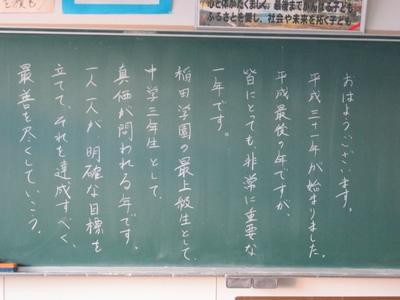 おはようございます。
平成三十一年が始まりました。
平成最後の年ですが、
皆にとっても、非常に重要な
一年です。
稲田学園の最上級生として、
中学三年生として、
真価が問われる年です。
一人一人が、明確な目標を
立てて、それを達成すべく、
最善を尽くしていこう。
ふるさとを愛し、社会や未来を拓く子ども